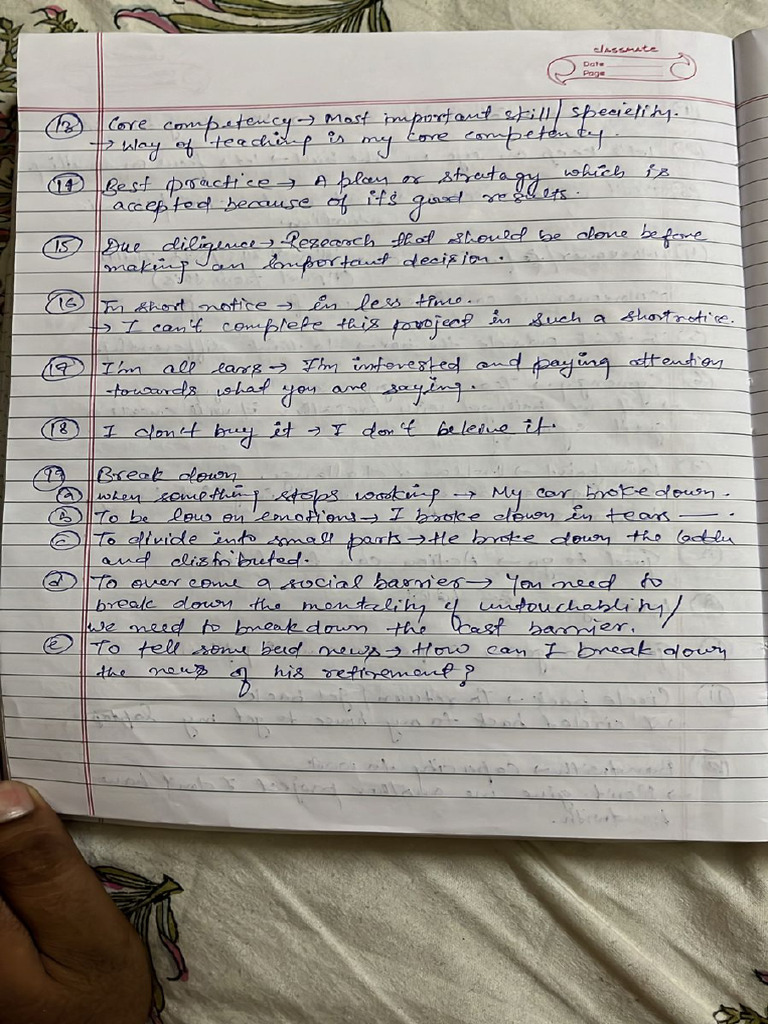 classmate
Date
Page
13 Core competency → Most important skill / speciality.
→ Way of teaching is my core competency.
14 Best practice → A plan or stratagy which is
accepted because of it's good results.
15 Due diligence → Research that should be done before
making an important decision.
16 In short notice → in less time.
→ I can't complete this project in such a short notice.
17 I'm all ears → I'm interested and paying attention
towards what you are saying.
18 I don't buy it → I don't beleive it.
19 Break down
a when something stops working → My car broke down.
b To be low on emotions → I broke down in tears —.
c To divide into small parts → He broke down the laddu
and distributed.
d To over come a social barrier → You need to
break down the mentality of untouchablity /
we need to break down the cast barrier.
e To tell some bad news → How can I break down
the news of his retirement?